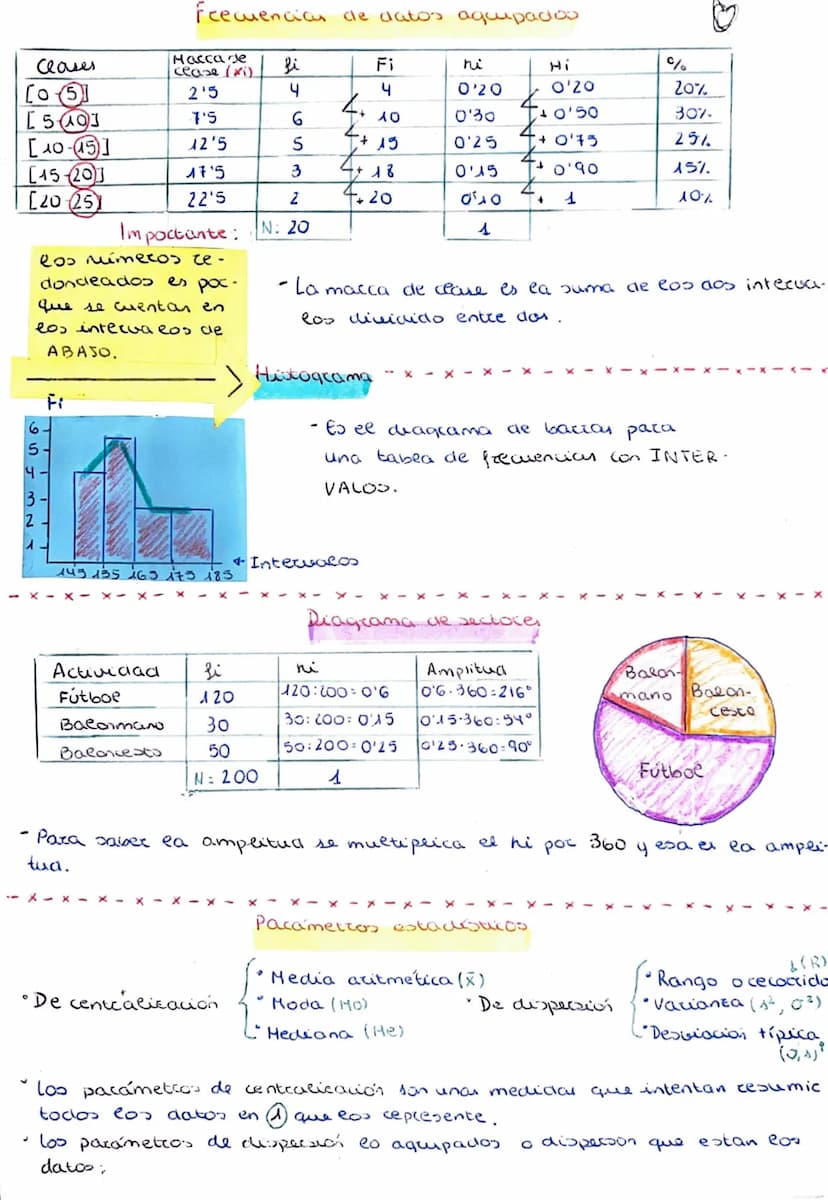 Frecuencias de datos agrupados
Clases Marca de clase (xi) fi Fi hi Hi %
[0-5] 2'5 4 4 0'20 0'20 20%
[5-10] 7'5 6 + 10 0'30 + 0'50 30%
[10-15] 12'5 5 + 15 0'25 + 0'75 25%
[15-20] 17'5 3 + 18 0'15 + 0'90 15%
[20-25] 22'5 2 + 20 0'10 + 1 10%
Importante: N: 20 1
los números re-
dondeados es por-
que se cuentan en
los intervalos de
ABAJO.
- La marca de clase es la suma de los dos interva-
los dividido entre dos.
Histograma
Fi
6
5
4
3
2
1
145 155 165 175 185
Intervalos
- Es el diagrama de barras para
una tabla de frecuencias con INTER-
VALOS.
Diagrama de sectores
Actividad fi hi Amplitud
Fútbol 120 120:200=0'6 0'6·360=216°
Balonmano 30 30:200=0'15 0'15·360=54°
Baloncesto 50 50:200=0'25 0'25·360=90°
N=200 1
Balon-
mano
Balon-
cesto
Fútbol
- Para saber la amplitud se multiplica el hi por 360 y esa es la ampli-
tud.
Parámetros estadísticos
• De centralización
• Media aritmética (x̄)
• Moda (Mo)
• Mediana (Me)
• De dispersión
(R)
• Rango o recorrido
• Varianza (s², σ²)
• Desviación típica
(σ, s)
• Los parámetros de centralización son unas medidas que intentan resumir
todos los datos en 1 que los represente.
• Los parámetros de dispersión lo agrupados o dispersos que estan los
datos: